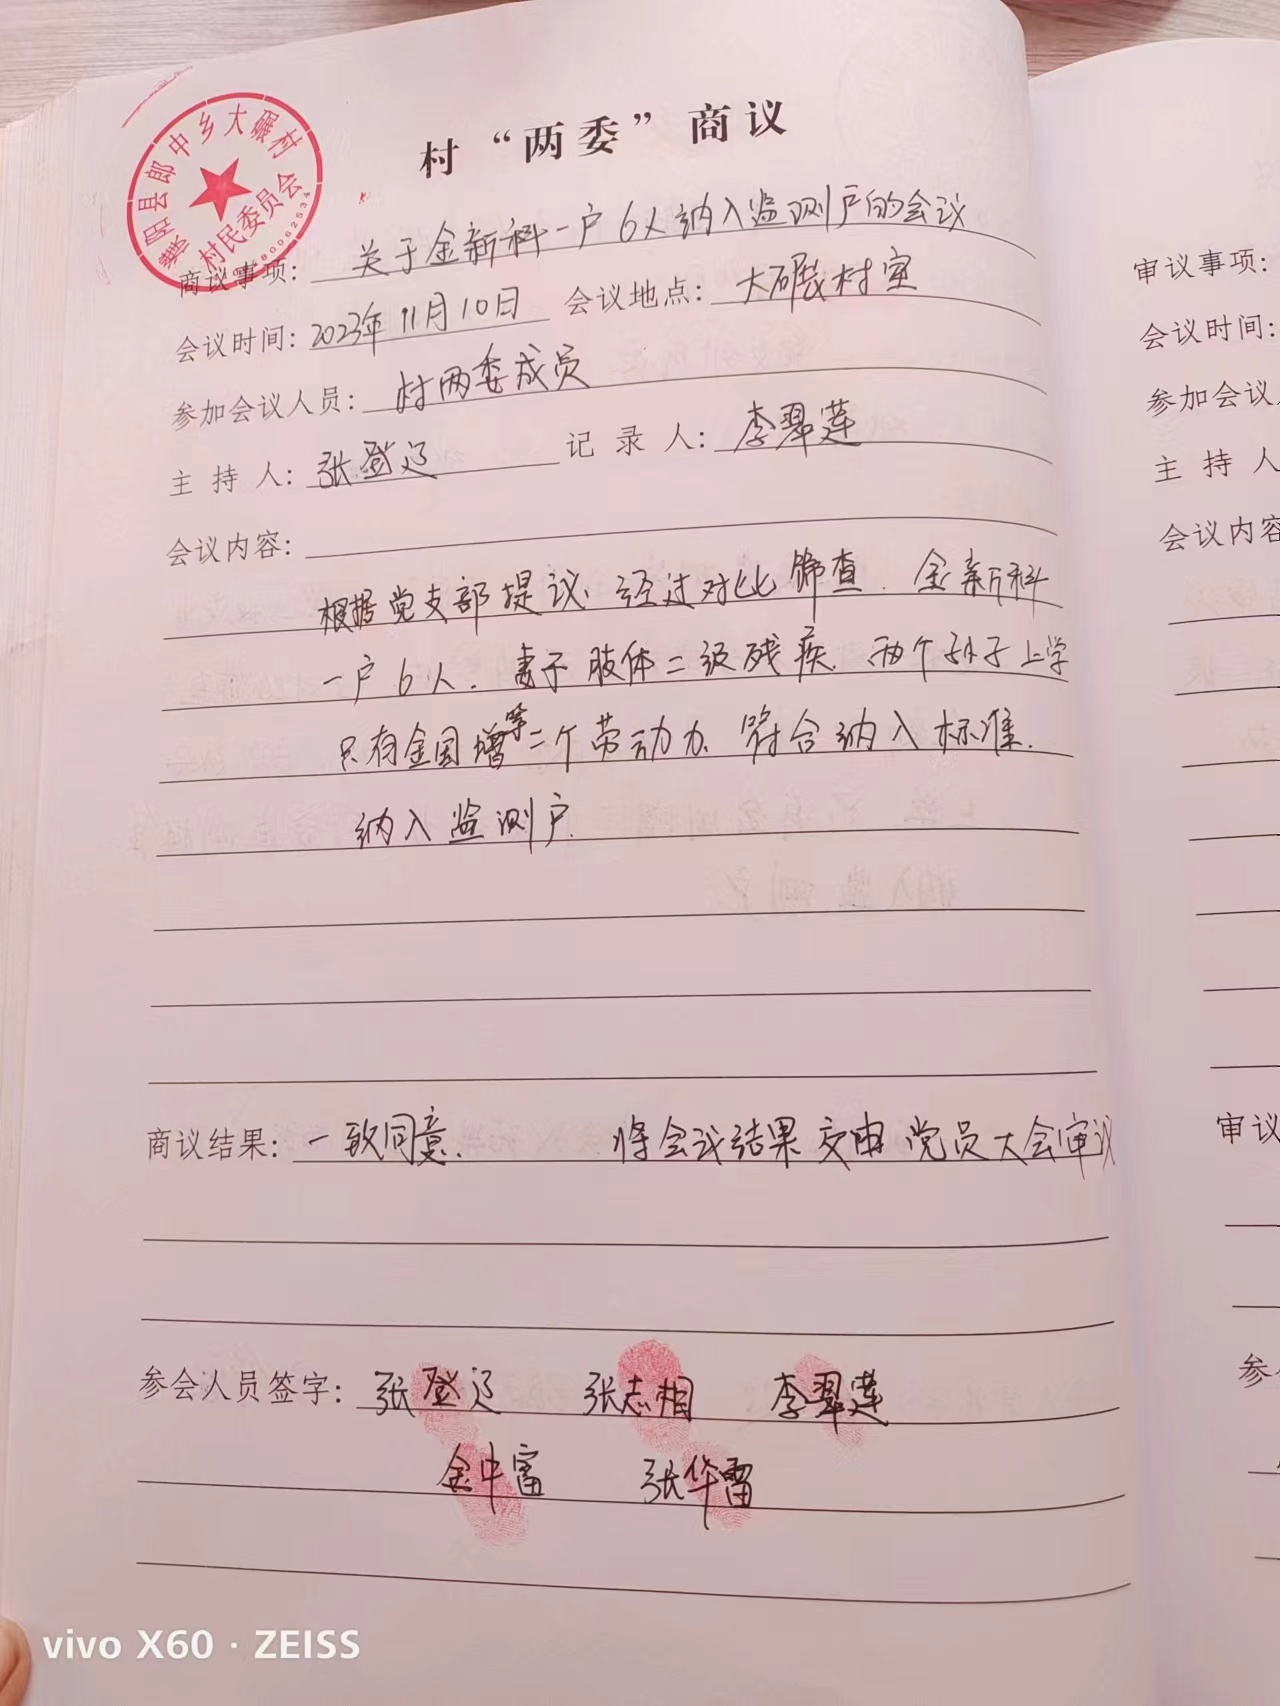 村“两委”商议
濮阳县郎中乡大碾村
村民委员会
商议事项: 关于金新科一户6人纳入监测户的会议
会议时间: 2023年11月10日 会议地点: 大碾村室
参加会议人员: 村两委成员
主 持 人: 张登辽 记 录 人: 李翠莲
会议内容:
根据党支部提议、经过对比筛查. 金新科
一户6人. 妻子肢体二级残疾. 两个孙子上学
只有金国增等二个劳动力、符合纳入标准.
纳入监测户.
商议结果: 一致同意. 将会议结果交由党员大会审议
参会人员签字: 张登辽 张志相 李翠莲
金中富 张华雷
审议事项:
会议时间:
参加会议
主 持 人
会议内容
审议
参
vivo X60 · ZEISS